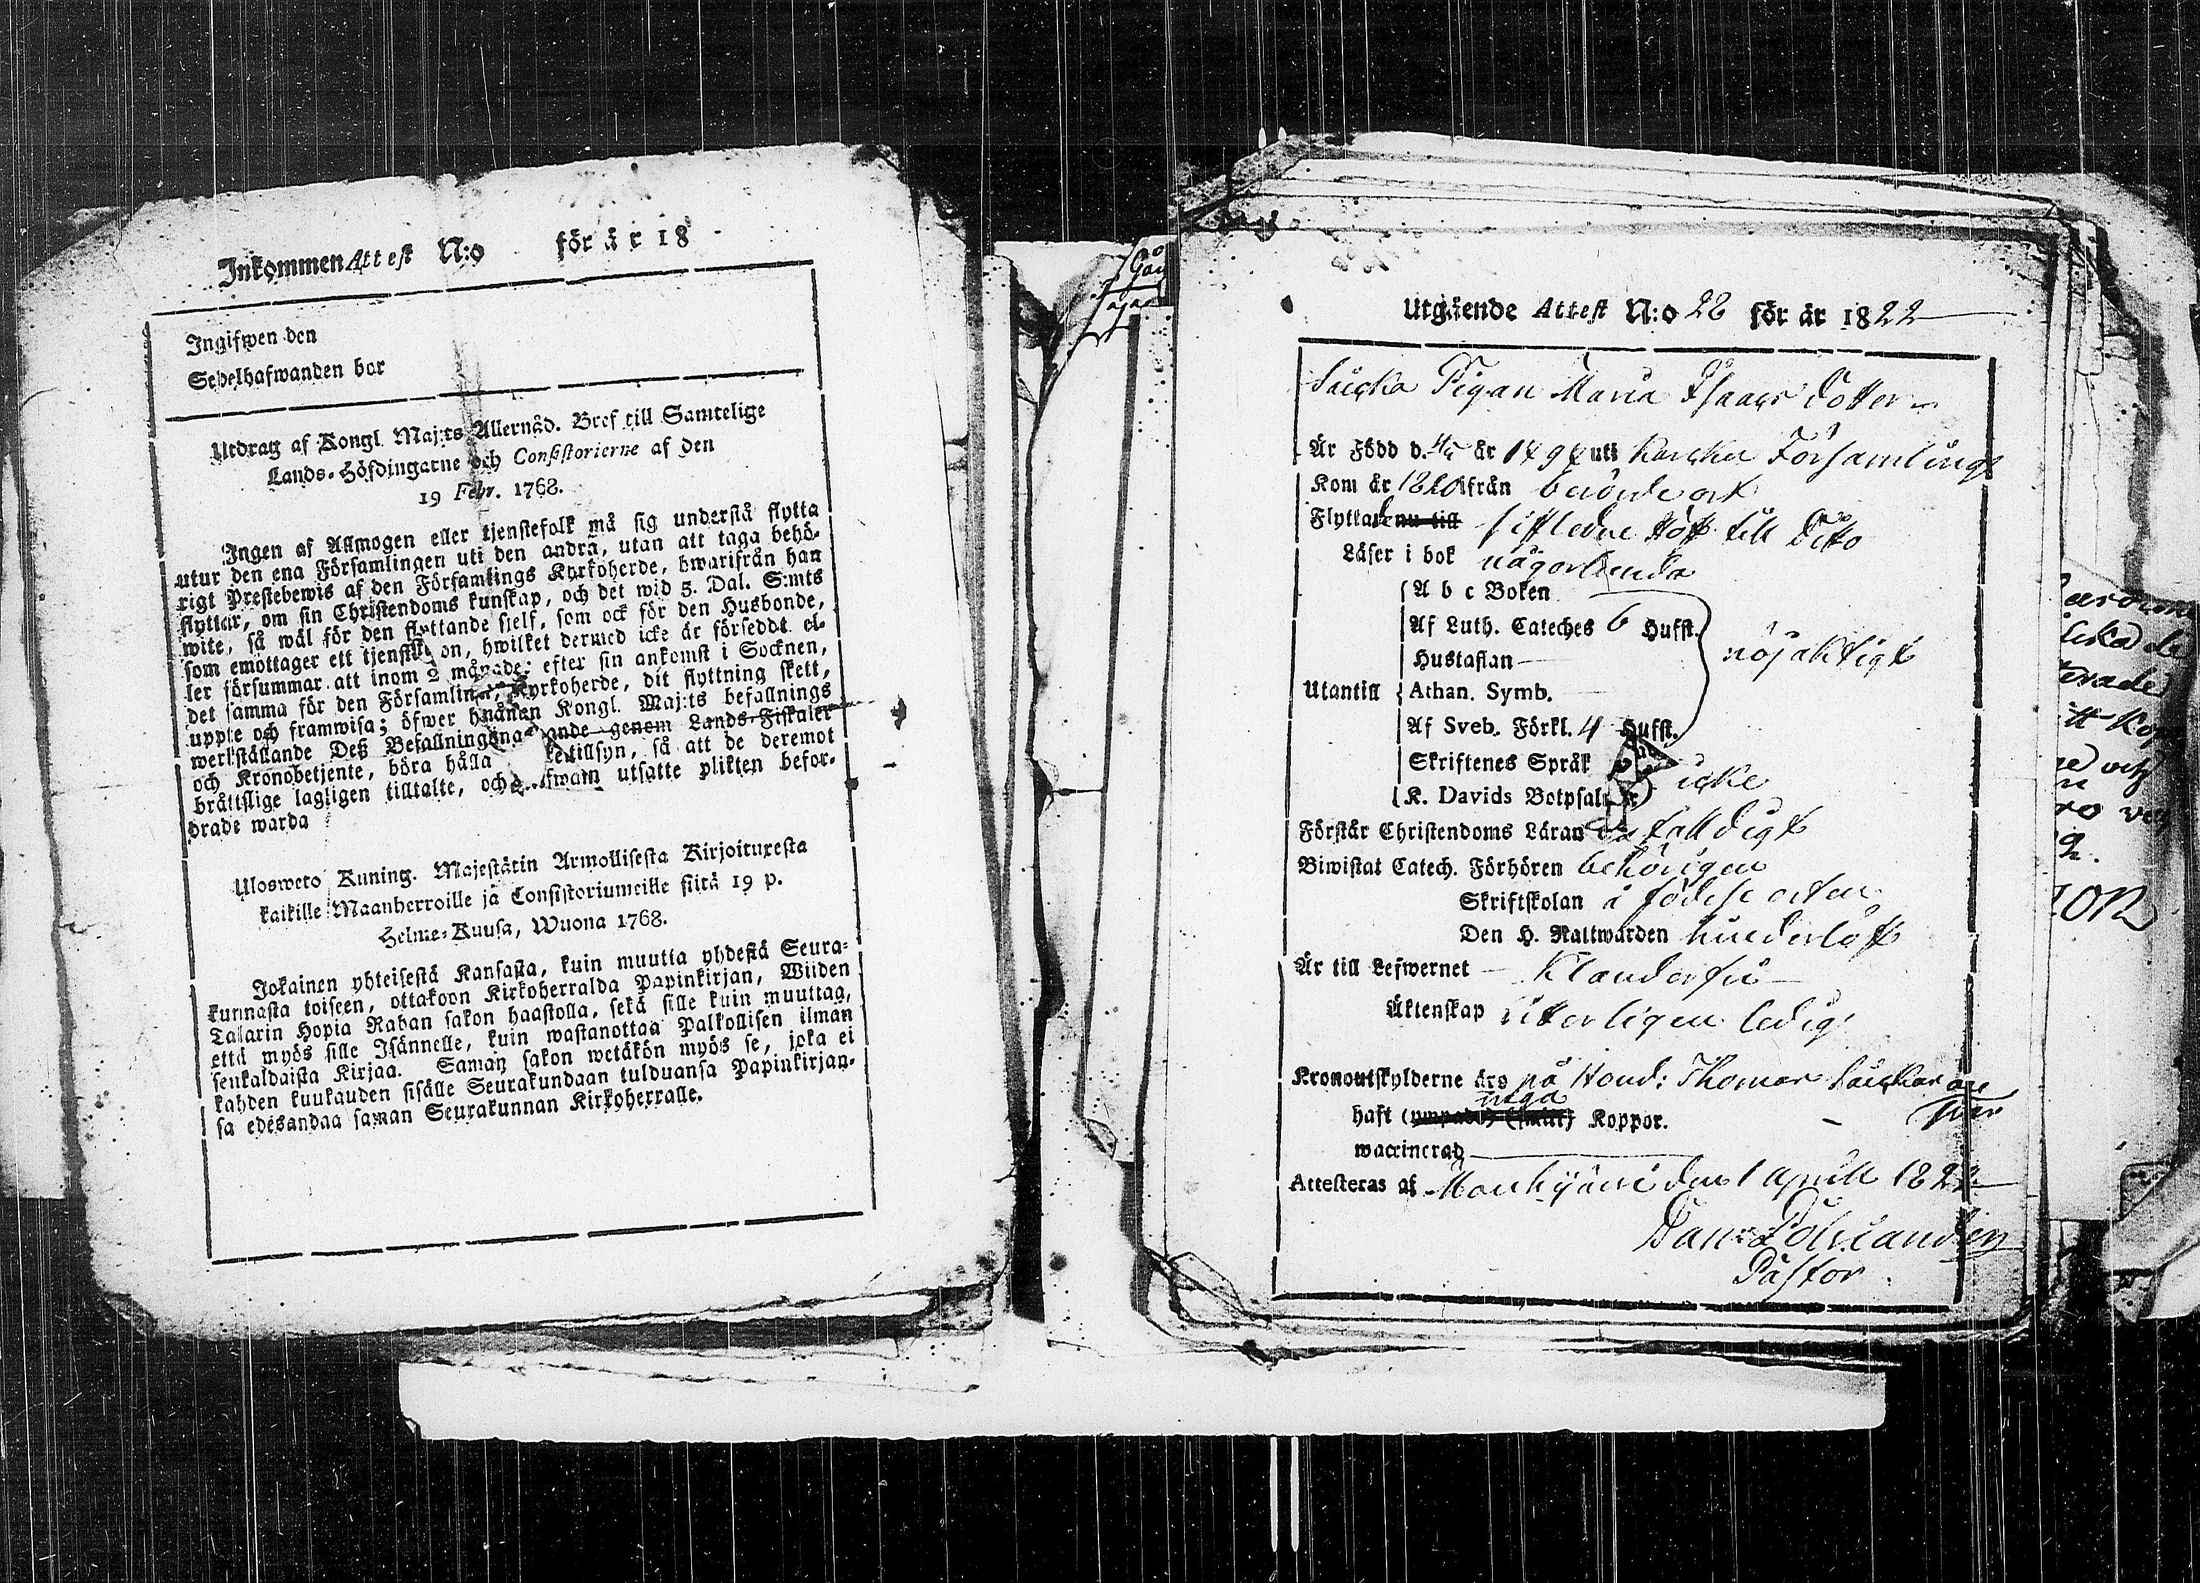 Inkommen Attest N:o för år 18
Ingifwen den
Sedelhafwanden bor
Utdrag af Kongl. Maj:ts Allernåd. Bref till Samtelige
Lands-Höfdingarne och Consistorierne af den
19 Febr. 1768.
Ingen af Allmogen eller tjenstefolk må sig understå flytta
utur den ena Församlingen uti den andra, utan att taga behö-
rigt Prestebewis af den Församlings Kyrkoherde, hwarifrån han
flyttar, om sin Christendoms kunskap, och det wid 5. Dal. S:mts
wite, så wäl för den flyttande sjelf, som ock för den Husbonde,
som emottager ett tjenstehjon, hwilket dermed icke är förseddt el-
ler försummar att inom 2 månader efter sin ankomst i Socknen,
det samma för den Församlings Kyrkoherde, dit flyttning skett,
uppte och framwisa; öfwer hwilken Kongl. Maj:ts befallnings
werkställande Deß Befallningshafwande genom Lands-Fiskaler
och Kronobetjente, böra hålla tillsyn, så att de deremot
bråttslige lagligen tilltalte, och utsatte plikten befor-
drade warda
Ulosweto Kuning. Majestätin Armollisesta Kirjoituxesta
kaikille Maanherroille ja Consistoriumeille siitä 19 p.
Helme-Kuusa, Wuona 1768.
Jokainen yhteisestä Kansasta, kuin muutta yhdestä Seura-
kunnasta toiseen, ottakoon Kirkoherralda Papinkirjan, Wiiden
Talarin Hopia Rahan sakon haastolla, sekä sille kuin muuttaa,
että myös sille Isännelle, kuin wastanottaa Palkollisen ilman
senkaldaista Kirjaa. Saman sakon wetäkön myös se, joka ei
kahden kuukauden sisälle Seurakundaan tulduansa Papinkirjan-
sa edesandaa saman Seurakunnan Kirkoherralle.
Utgående Attest N:o 22 för år 1822
Pigan Maria Isaacs Dotter
Är Född d. 4/5 år 1797 uti Församling
Kom år 1820 ifrån berörde ort
Flyttade nu till sistledne Höst till Ditto
Läser i bok någorlunda
A b c Boken
Af Luth. Cateches 6 Hufst.
Hustaflan nöjaktigt
Utantill Athan. Symb.
Af Sveb. Förkl. 4 Hufst.
Skriftenes Språk
K. Davids Botpsalmer icke
Förstår Christendoms Läran enfalldigt
Biwistat Catech. Förhören behörigen
Skriftskolan å födelse orten
Den H. Nattwarden hinderlöst
Är till Lefwernet Klanderfri
Äktenskap witterligen ledig
Kronoutskylderne äro på Hemd: Thomas
haft inga Koppor.
waccinerad
Attesteras af Mouhijärvi den 1 April 1822
Pastor